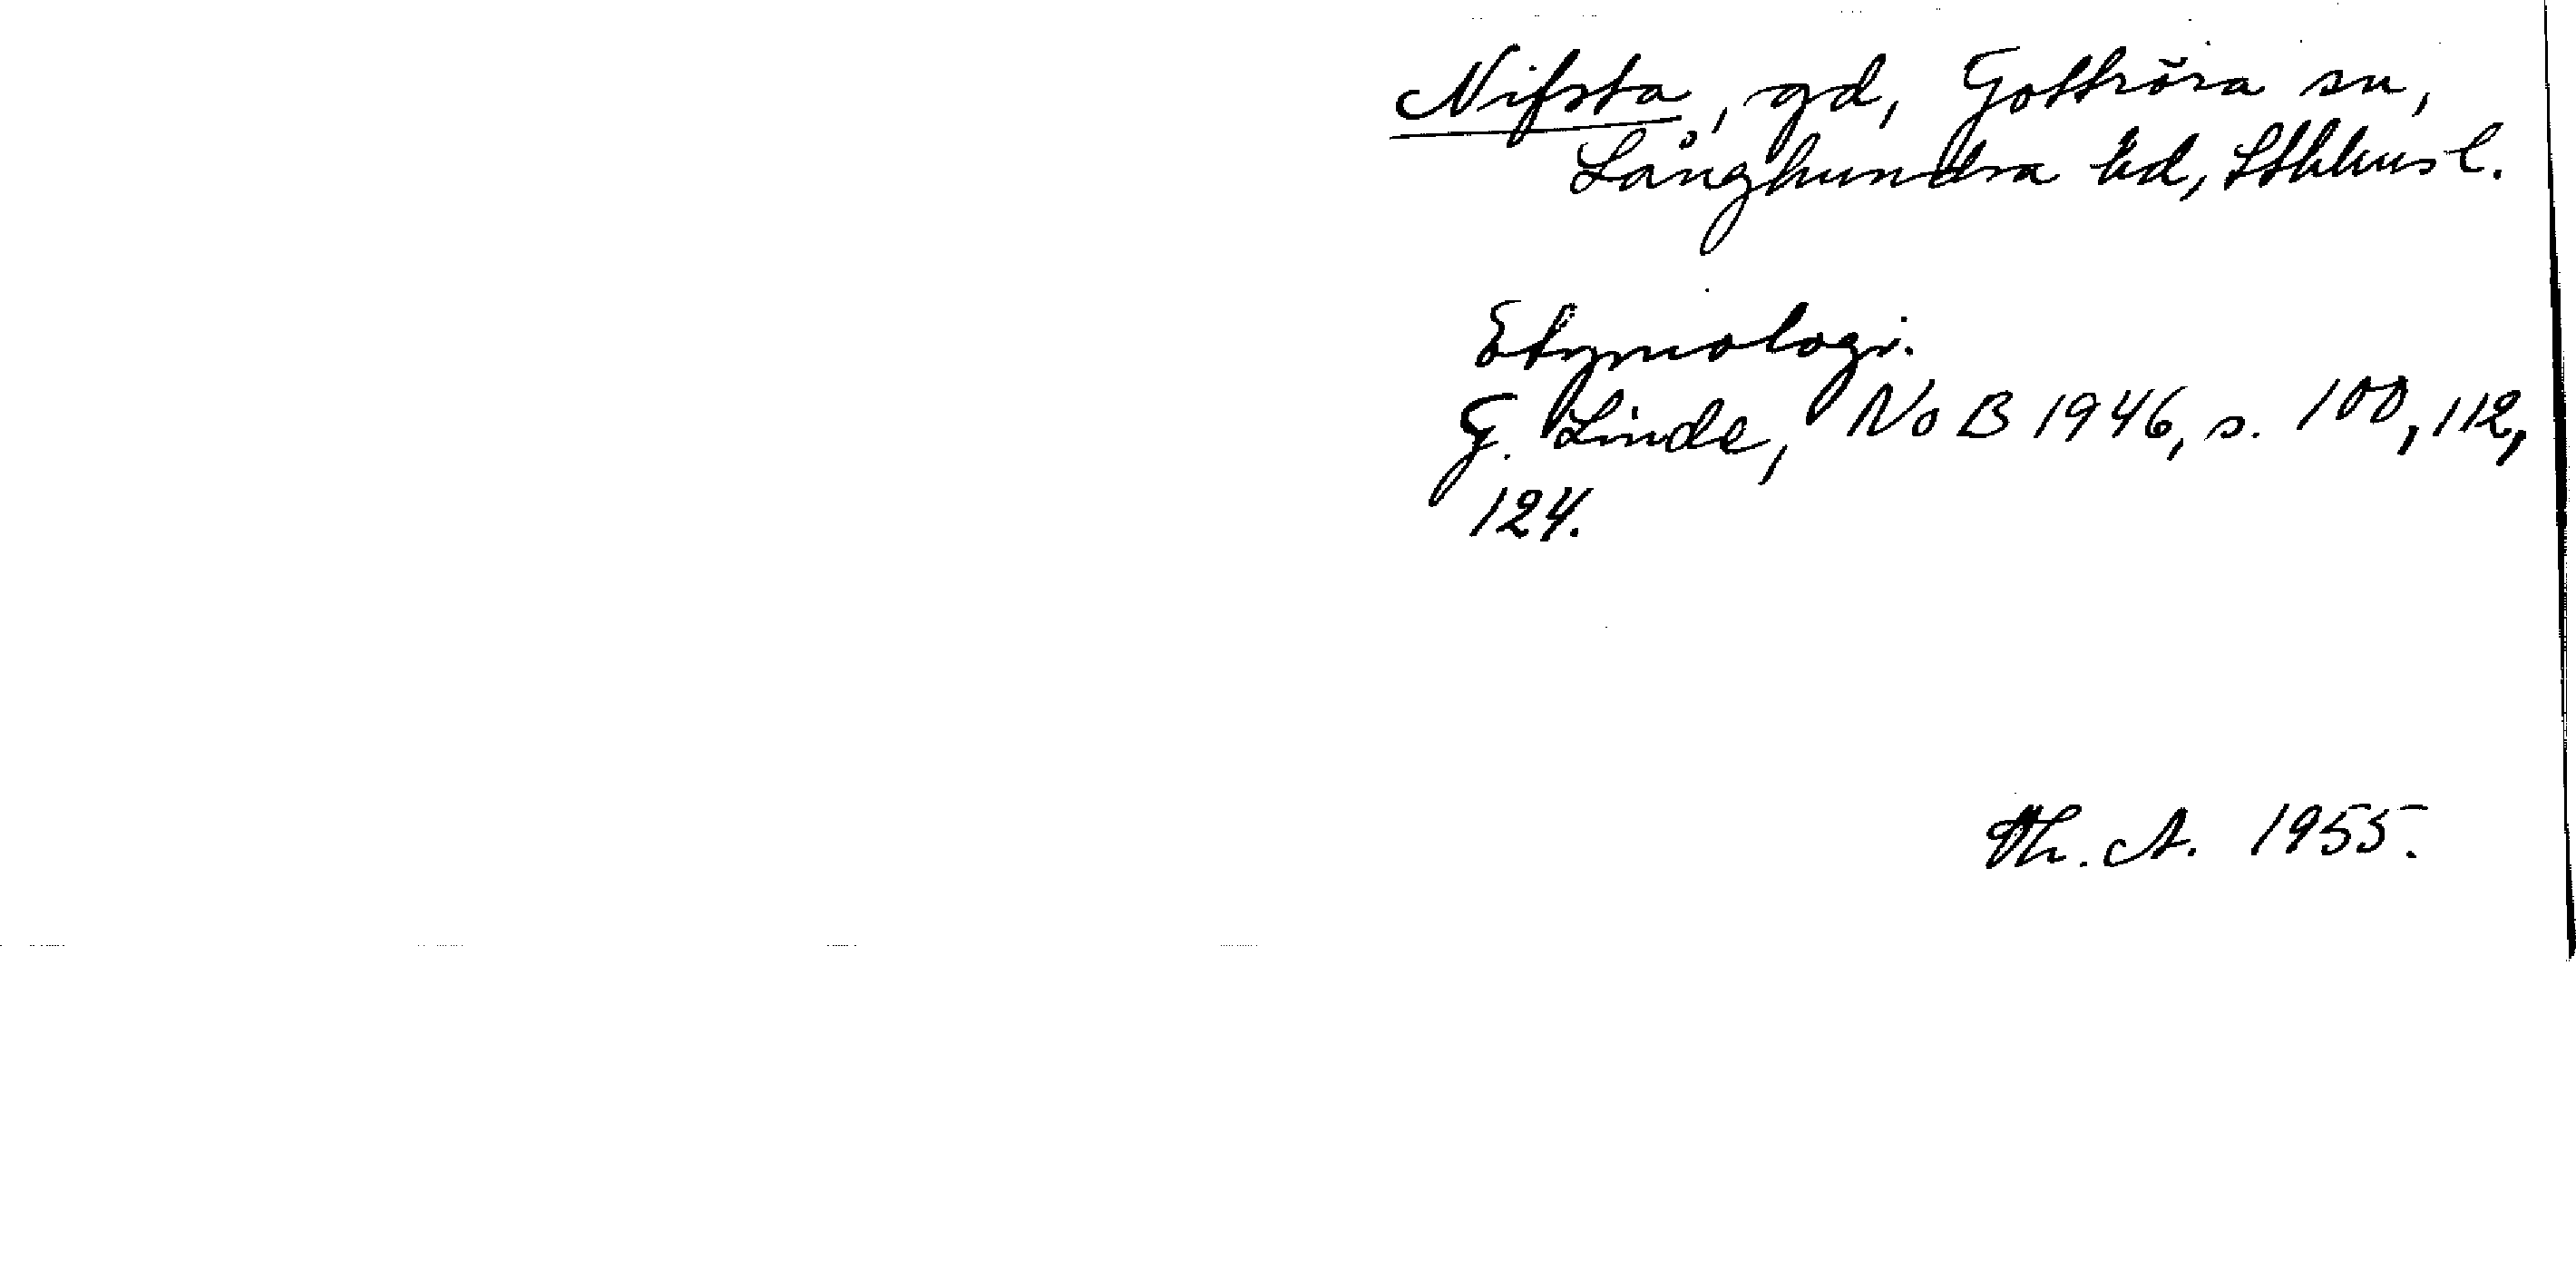 Nifsta, gd, Gottröra sn,
Långhundra hd, Sthlms l.
Etymologi.
G. Linde, NoB 1946, s. 100, 112,
124.
Th. A. 1955.